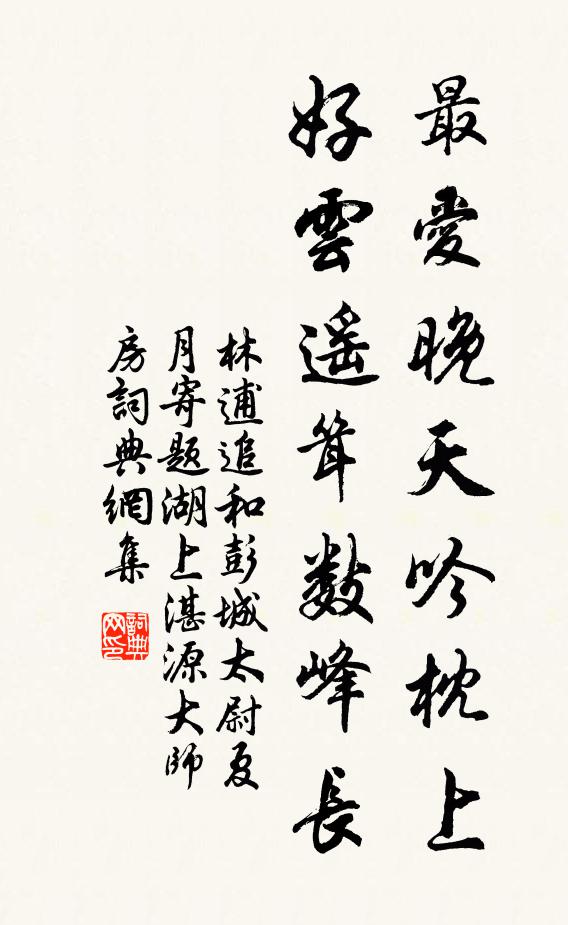 最愛晚天吟枕上
好雲遥耸数峰長
林逋追和彭城太尉夏
月寄题湖上湛源大師
房詞典網集
詞典网印